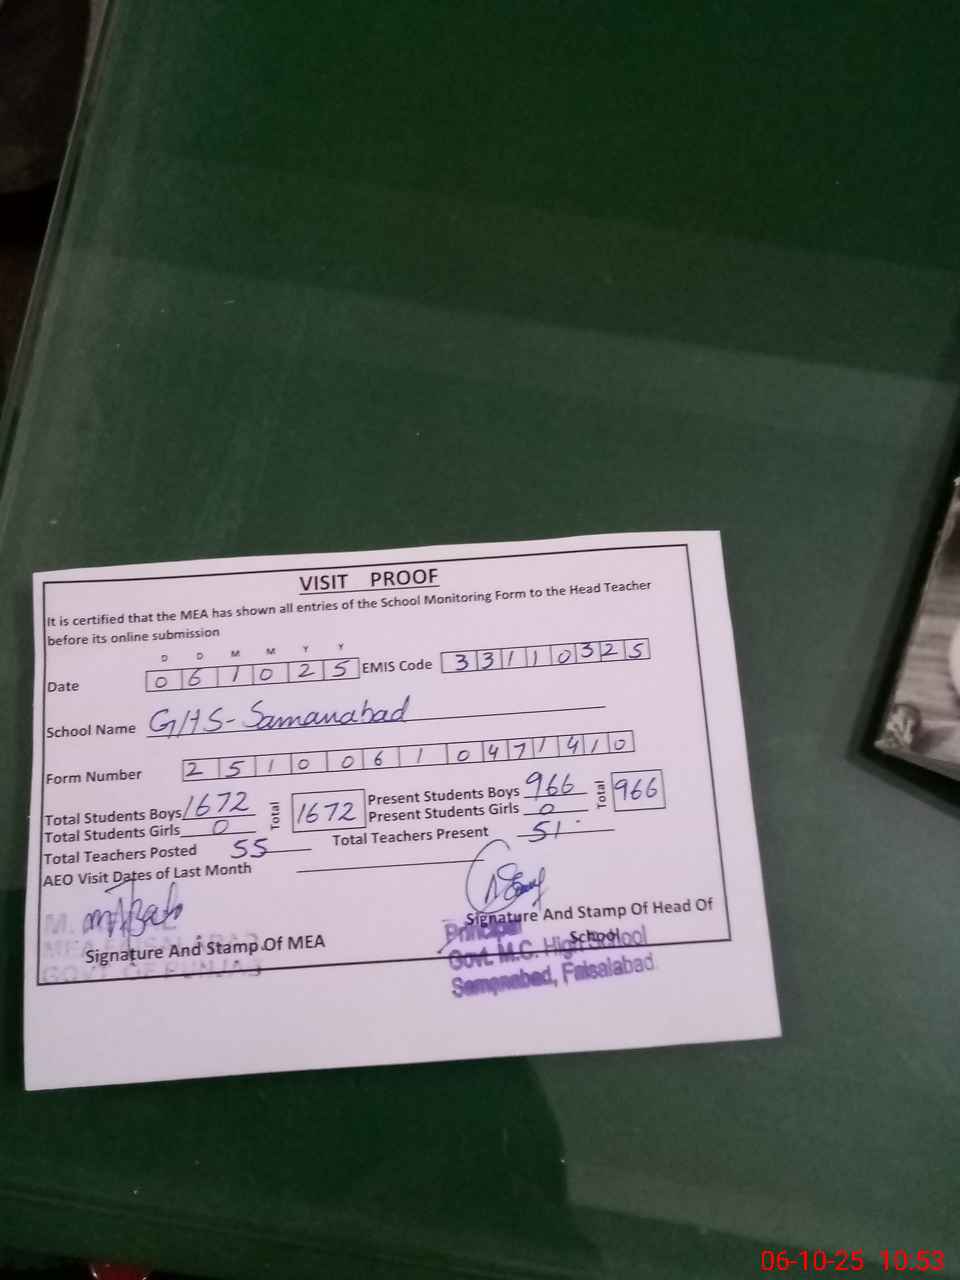 VISIT PROOF
It is certified that the MEA has shown all entries of the School Monitoring Form to the Head Teacher
before its online submission
D D M M Y Y
Date 0 6 1 0 2 5 EMIS Code 3 3 1 1 0 3 2 5
School Name GHS-Samanabad
Form Number 2 5 1 0 0 6 1 0 4 7 1 4 1 0
Total Students Boys 1672 Total 1672 Present Students Boys 966 Total 966
Total Students Girls 0 Present Students Girls 0
Total Teachers Posted 55 Total Teachers Present 51
AEO Visit Dates of Last Month
Signature And Stamp Of MEA
Signature And Stamp Of Head Of
School
M.
MEA FAISALABAD
GOVT. OF PUNJAB
Principal
Govt. M.C. High School
Samanabad, Faisalabad.
06-10-25 10:53